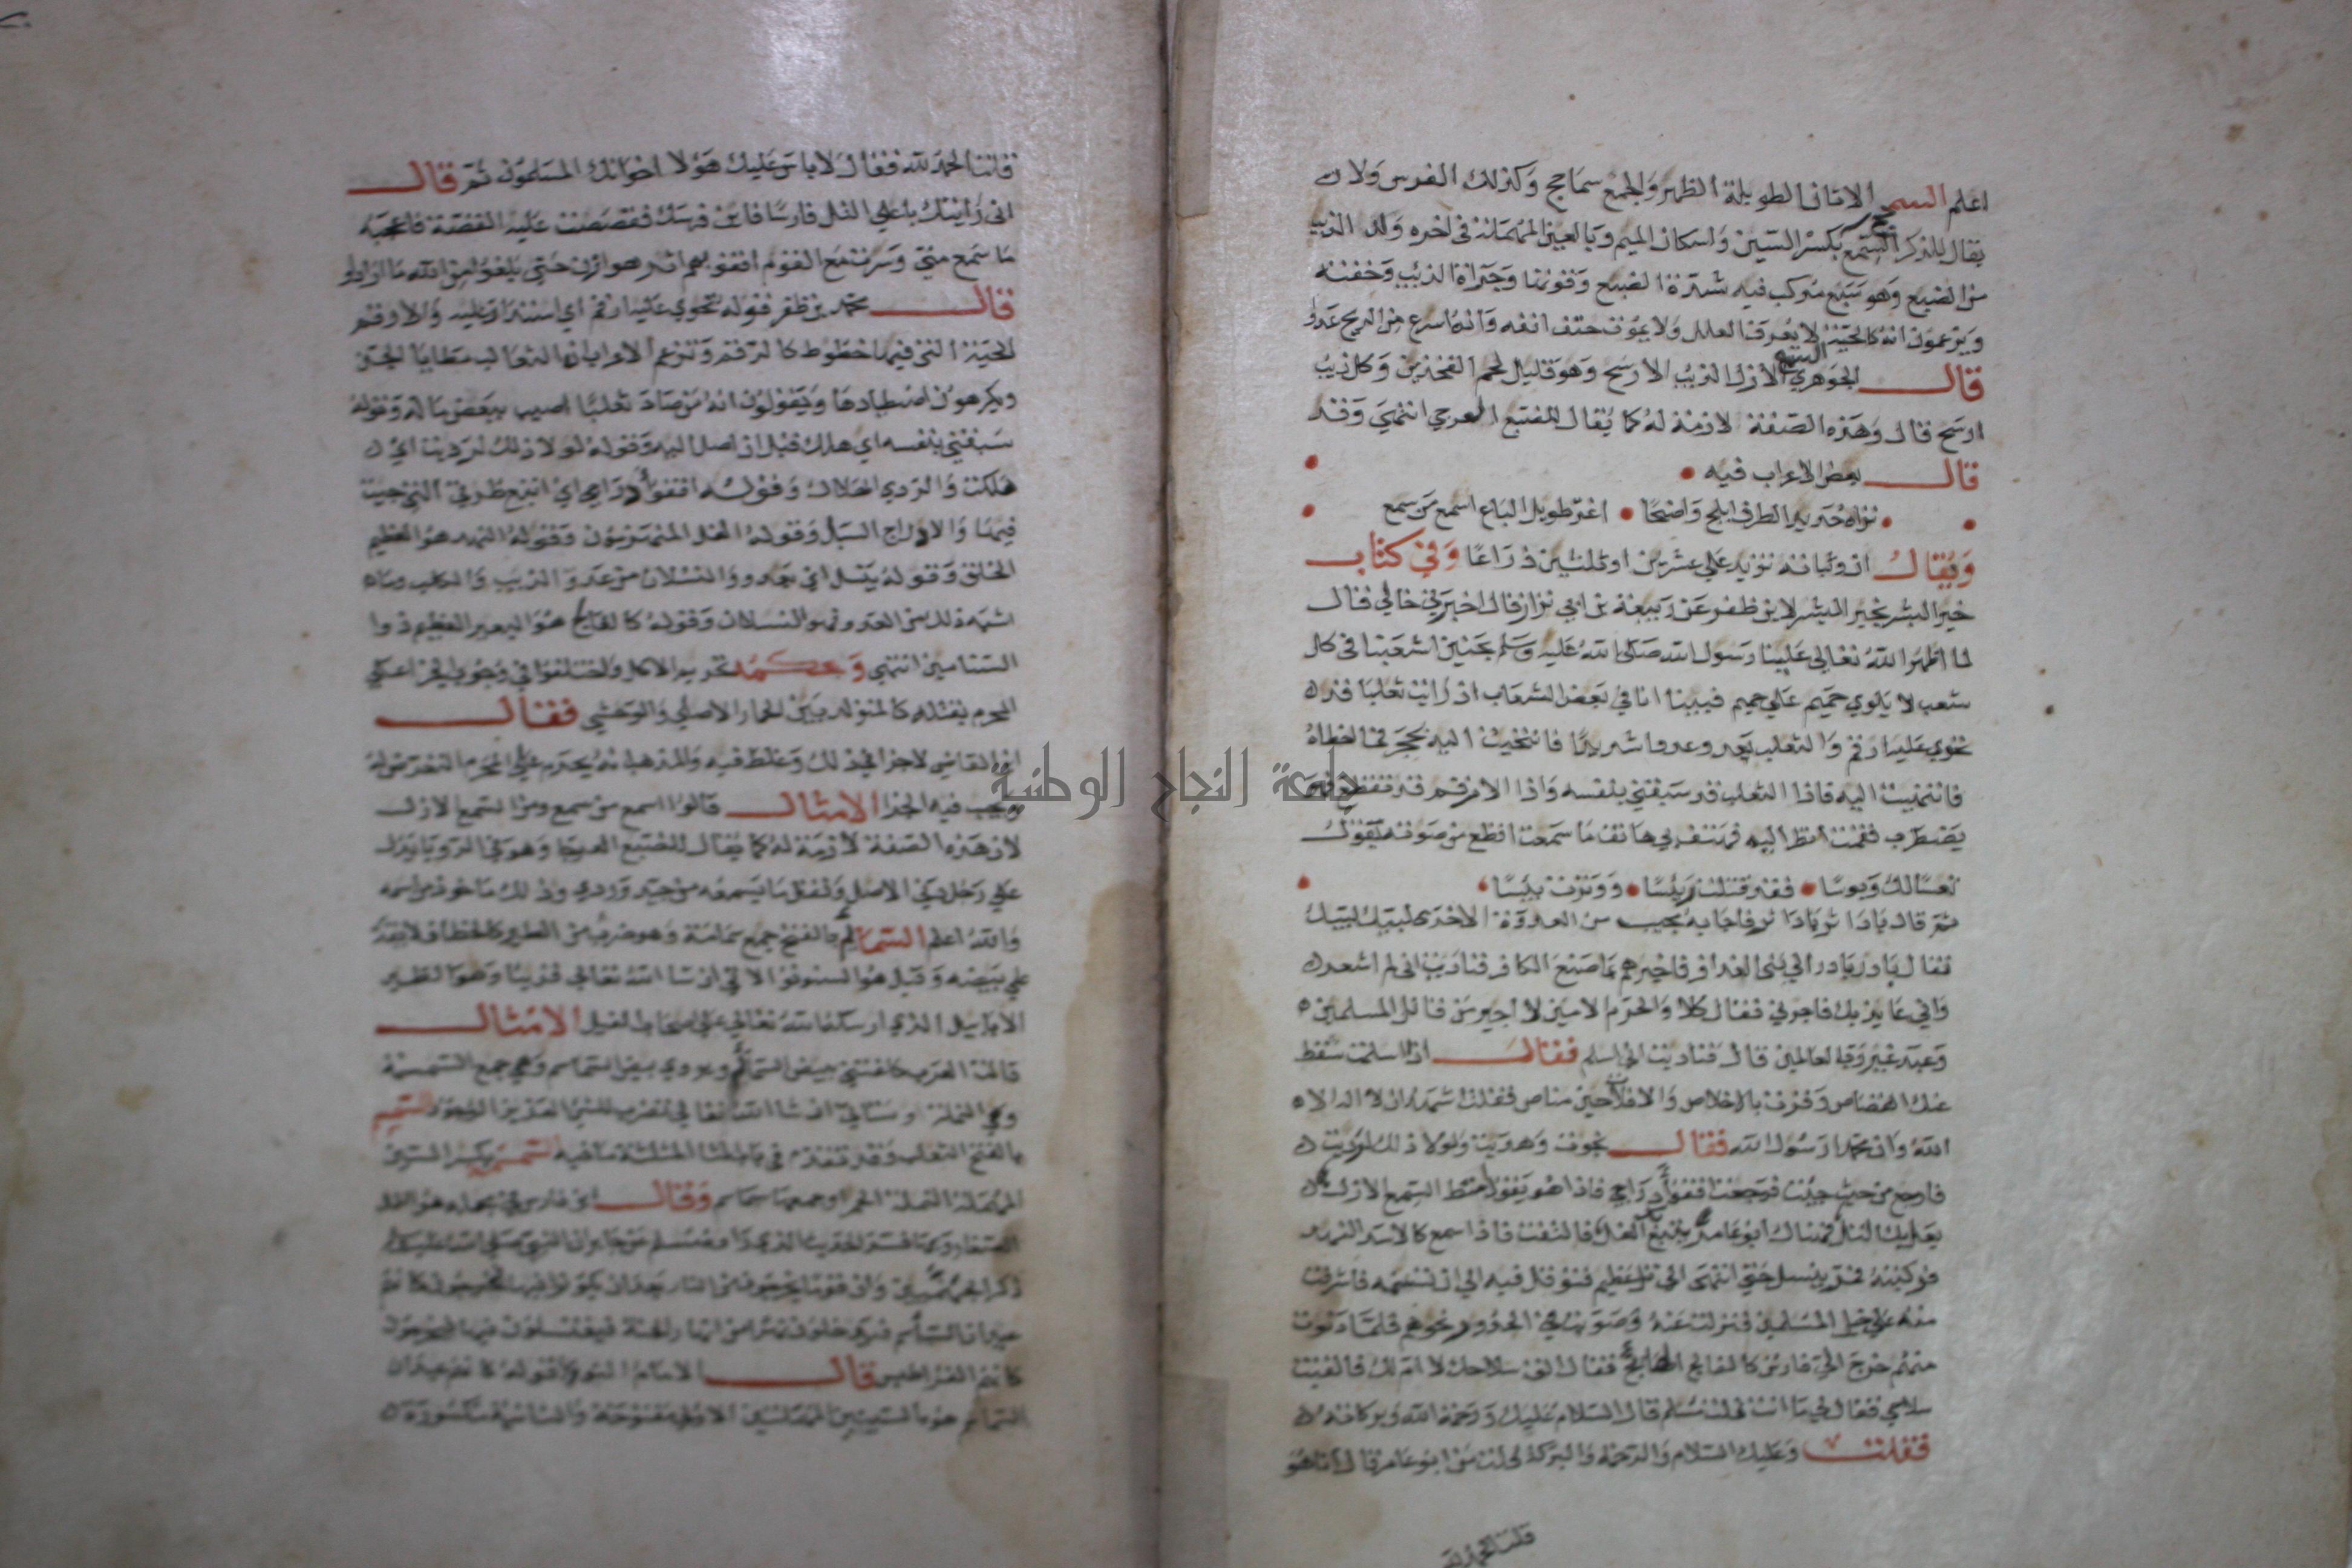 اعلم السمحج الاتان الطويلة الظهر والجمع سماحج وكذلك الفرس ولا
يقال للذكر السمع بكسر السين واسكان الميم وبالعين المهملة في اخره ولد الذيب
من الضبع وهو سبع مركب فيه شدة الضبع وقوتها وجراة الذيب وخفته
ويزعمون انه كالحية لا يعرف العلل ولا يموت حتف انفه وانه اسرع من الريح عدوا
قال الجوهري السمع الازل الذيب الارسح وهو قليل لحم الفخذين وكل ذيب
ارسح قال وهذه الصفة لازمة له كما يقال للضبع العرجي انتهي وقد
قال بعض الاعراب فيه
تراه حديد الطرف ابلج واضحا اغر طويل الباع اسمع من سمع
ويقال ان وثباته تزيد علي عشرين او ثلثين ذراعا وفي كتاب
خير البشر بخير البشر لابن ظفر عن ربيعة بن ابي نزار قال اخبرني خالي قال
لما اظهر الله تعالي علينا رسول الله صلى الله عليه وسلم بحنين اشعبنا في كل
شعب لا يلوي حميم علي حميم فبينا انا في بعض الشعاب اذ رايت ثعلبا قد
تحوي عليه ارقم والثعلب يعدو عدوا شديدا فانتحيت اليه بحجر فما اخطاه
فانتهيت اليه فاذا الثعلب قد سبقني بنفسه واذا الارقم قد تقطع وهو
يضطرب فقمت انظر اليه فهتف بي هاتف ما سمعت افظع من صوته يقول
تعسا لك وبوسا فقد قتلت رييسا وورثت بييسا
ثم قال يادا ثر يادا ثر فاجابه مجيب من العدوة الاخرى لبيك لبيك
فقال بادر بادر الي بني الغدافر فاخبرهم بما صنع الكافر فناديت اني لم اشعر
واني عايذ بك فاجرني فقال كلا والحرم الامين لا اجير من قاتل المسلمين
وعبد غير رب العالمين قال فناديت اني اسلم فقال اذا اسلمت سقط
عنك القصاص وفزت بالخلاص والا فلات حين مناص فقلت اشهد ان لا اله الا
الله وان محمدا رسول الله فقال نجوت وهديت ولولا ذلك لرديت
فارجع من حيث جيت فرجعت اقفوا ادراجي فاذا هو يقول امتط السمع الازل
يعل بك التل فهناك ابو عامر يتبع الفل فالتفت فاذا سمع كالاسد النهد
فركبته فمر ينسل حتي انتهى الي تل عظيم فتوقل فيه الي ان تسنمه فاشرفت
منه علي خيل المسلمين فنزلت عنه وصوبت في الحدور نحوهم فلما دنوت
منهم خرج الي فارس كالفالج الهايج فقال الق سلاحك لا ام لك فالقيت
سلاحي فقال لي ما انت قلت مسلم قال السلام عليك ورحمة الله وبركاته
فقلت وعليك السلام والرحمة والبركة قلت من ابو عامر قال انا هو
قلت الحمد لله
قلت الحمد لله فقال لا باس عليك هولا اخوانك المسلمون ثم قال
اني رايتك باعلي التل فارسا فاين فرسك فقصصت عليه القصة فاعجبه
ما سمع مني وسرت مع القوم اقفو بهم اثر هوازن حتي بلغوا من الله ما ارادوا
قال محمد بن ظفر قوله تحوي عليه ارقم اي استدار عليه والارقم
الحية التي فيها خطوط كالرقم وتزعم الاعراب ان الثعالب مطايا الجن
ويكرهون اصطيادها ويقولون انه من صاد ثعلبا اصيب ببعض ماله وقوله
سبقني بنفسه اي هلك قبل ان اصل اليه وقوله لولا ذلك لرديت اي
هلكت والردي الهلاك وقوله اقفوا ادراجي اي اتبع طريقي التي جيت
فيها والادراج السبل وقوله الفل المنهزمون وقوله النهد هو العظيم
الخلق وقوله ينسل اي يعدو والنسلان من عدو الذيب والكلب وما
اشبه ذلك من العدو وهو النسلان وقوله كالفالج هو البعير العظيم ذوا
السنامين انتهي وحكمه تحريم الاكل واختلفوا في وجوب الجزاء علي
المحرم بقتله كالمتولد بين الحمار الاصلي والوحشي فقال
ابن القاص لا جزا في ذلك وغلط فيه والمذهب انه يحرم علي المحرم التعرض له
ويجب فيه الجزا الامثال قالوا اسمع من سمع ومن السمع الازل
لان هذه الصفة لازمة له كما يقال للضبع العرجا وهو في الرويا يدل
علي رجل دني الاصل ولنقل ما يسمعه من جيد وردي وذلك ماخوذ من اسمه
والله اعلم السمايم بالفتح جمع سمامة وهو ضرب من الطير كالخطاف لا يقدر
علي بيضه وقيل هو السنونو الاتي ان شا الله تعالي قريبا وهو الطير
الابابيل الذي ارسله الله تعالي علي اصحاب الفيل الامثال
قالت العرب كلفتني بيض السمايم ويروي بيض السماسم وهي جمع السمسمة
وهي النملة وسياتي ان شا الله تعالي السميم
بالفتح الثعلب وقد تقدم في باب الثا المثلثة ما فيه السمسمة بكسر السين
المهملة النملة الحمرا وجمعها سماسم وقال ابن فارس في مجمله هو النمل
الصغار وبه فسر الحديث الذي رواه مسلم عن جابر ان النبي صلى الله عليه
ذكر الجهنميين وان قوما يخرجون من النار بعد ان يكونوا فيها فيخرجون كانهم
عيدان السماسم فيدخلون نهرا من انهار الجنة فيغتسلون فيها فيخرجون
كانهم القراطيس قال الامام النووي قوله كانهم عيدان
السماسم هو بالسينين المهملتين الاولي مفتوحة والثانية مكسورة
جامعة النجاح الوطنية